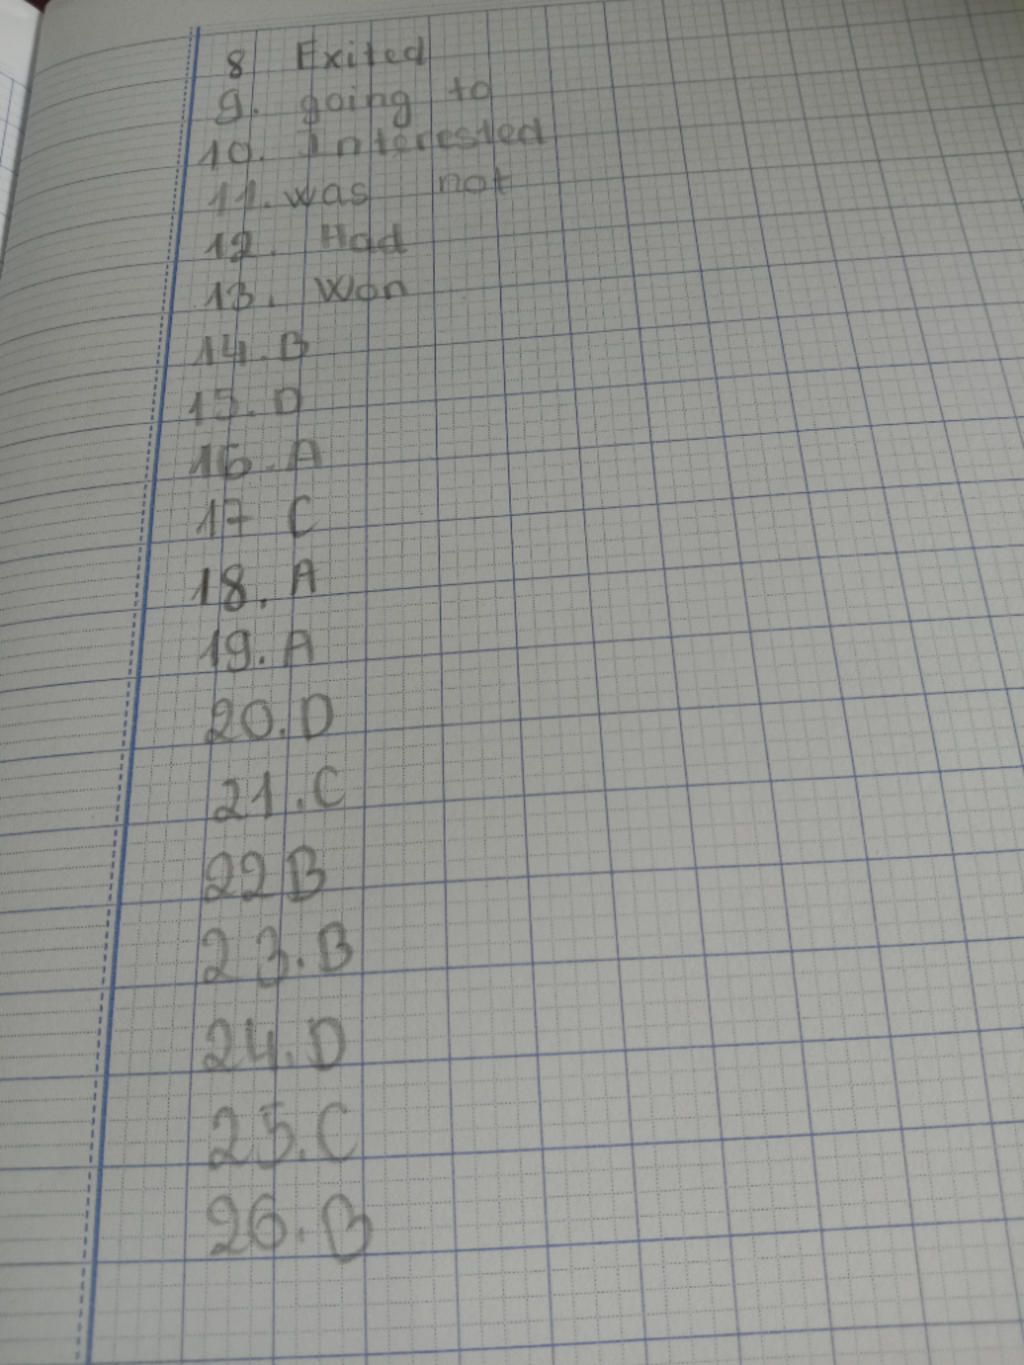 8 Exited
9. going to
10. Interested
11. was not
12. Had
13. Won
14. B
15. D
16. A
17 C
18. A
19. A
20. D
21. C
22 B
23. B
24. D
25. C
26. B